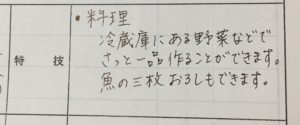 特技
・料理
冷蔵庫にある野菜などで
さっと一品作ることができます。
魚の三枚おろしもできます。